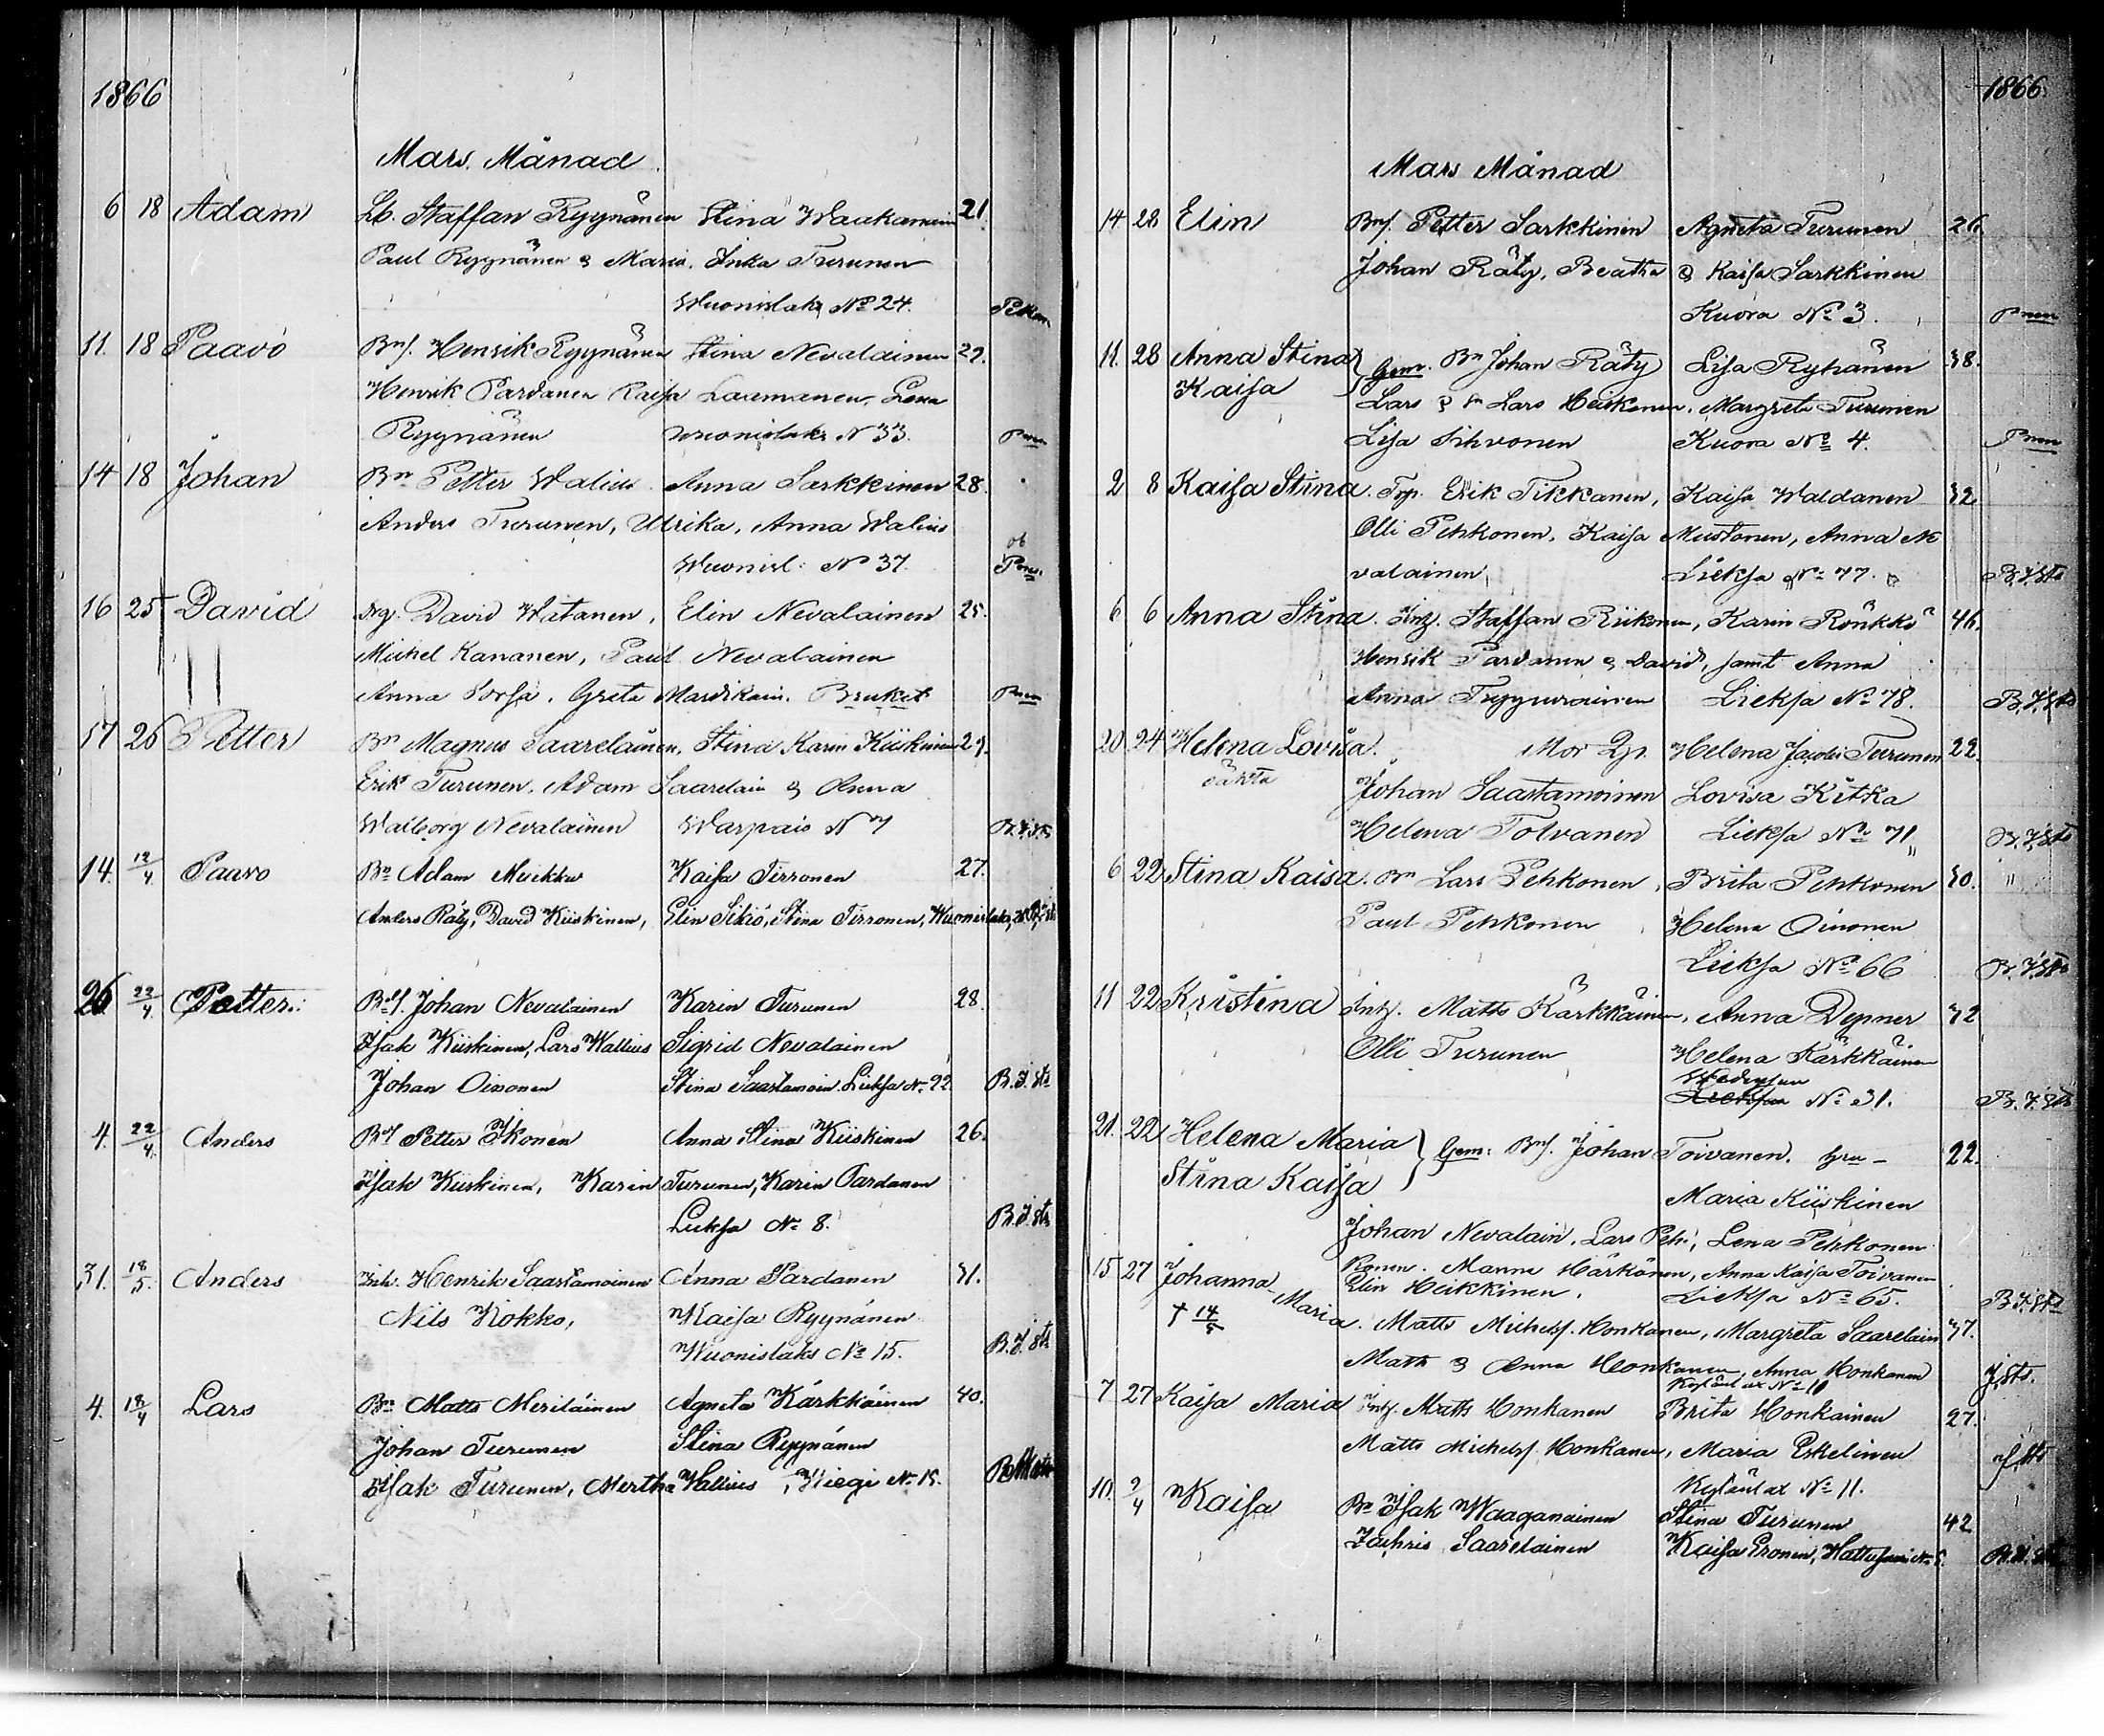 1866
Mars. Månad
6 18 Adam Lb. Staffan Ryynänen Stina Waakamein 21.
Paul Ryynänen & Maria. Inka Turunen
Wuonislaks No 24. Pekkan
11. 18 Paavo Bnf. Henrik Ryynänen Stina Nevalainen 29.
Henrik Pardanen Kaisa Laamanen, Lena
Ryynänen Wuonislaks N 33. Pnen
14 18 Johan Bn Petter Walius Anna Sarkkinen 28.
Anders Turunen, Ulrika, Anna Walius
Wuonisl: No 37. ob Pnen.
16 25 David drg. David Watanen, Elin Nevalainen 25.
Michel Kananen, Paul Nevalainen
Anna Sorsa. Greta Mardikain. Bruket Pnen
17 26 Petter Bn Magnus Saarelainen, Stina Karin Kiiskinen 29.
Erik Turunen, Adam Saarelain & Anna
Walborg Nevalainen Warpais N 7 B. J. sts
14. 12/4 Paavo Bn Adam Muikku Kaisa Tirronen 27.
Anders Räty, David Kiiskinen, Elin Sikiö, Stina Tirronen, Wuonislaks,
26 22/4. Petter: Bnf. Johan Nevalainen Karin Turunen 28.
Isak Kiiskinen, Lars Wallius Sigrid Nevalainen
Johan Oinonen Stina Saastamoin. Lieksa No 22 B. J. sts
4. 22/4. Anders Bnf Petter Ikonen Anna Stina Kiiskinen 26.
Isak Kiiskinen, Karin Turunen, Karin Pardanen
Lieksa No 8. B. J. sts
31. 18/5. Anders Inh. Henrik Saastamoinen Anna Pardanen 31.
Nils Kokko, Kaisa Ryynänen
Wuonislaks No 15. B. J. sts
4. 18/4 Lars Bn Matts Meriläinen Agneta Kärkkäinen 40.
Johan Turunen Stina Ryynänen
Isak Turunen, Mertha Wallius, Wiegi No 15.
1866
Mars Månad
14 28 Elin Bnf. Petter Sarkkinen Agneta Turunen 26.
Johan Räty, Beatha & Kaisa Sarkkinen
Kuora No 3. Pnen
11. 28 Anna Stina } Gem. Bn Johan Räty Lisa Ryhänen 38.
Kaisa Lars & Lars Heikkonen. Margreta Turunen
Lisa Sihvonen Kuora No 4. Pnen
2 8 Kaisa Stina. Torp. Erik Tikkanen, Kaisa Waldanen 32.
Olli Pehkonen, Kaisa Mustonen, Anna Ne
valainen, Lieksa No 77. B. J. sts
6 6 Anna Stina. Inh. Staffan Riikonen, Karin Rönkkö 46.
Henrik Pardanen & David, samt Anna
Anna Tryyneuroinen Lieksa No 78. B. J. sts
20. 24 Helena Lovisa. Mor Qp. Helena Jacobs Turunen 22.
oäkta Johan Saastamoinen Lovisa Kitka
Helena Tolvanen Lieksa No 71,, B. J. sts
6 22 Stina Kaisa. Bn Lars Pehkonen, Brita Pehkonen 30. "
Paul Pehkonen Helena Oinonen
Lieksa No 66 B. J. sts
11 22 Kristina Inh. Matts Kärkkäinen, Anna Depner 32
Olli Turunen Helena Kärkkäinen
No 31. B. J. sts
21. 22 Helena Maria } Gem: Bnf. Johan Toivanen. 22.
Stina Kaisa Maria Kiiskinen
Johan Nevalain, Lars Peh, Lena Pehkonen
konen. Manne Härkönen, Anna Kaisa Toivanen
Elin Heikkinen, Lieksa No 65. B. J. sts
15 27 Johanna Maria. Matts Michelsf. Honkanen, Margreta Saarelain 37.
† 14/5 Matts & Anna Honkanen, Anna Honkanen
Kylänlax No 11 J. sts.
7 27 Kaisa Maria Inh. Matts Honkanen Brita Honkainen 27.
Matts Michelsf. Honkanen, Maria Eskelinen
Kylänlax No 11. J. sts
10. 2/4 Kaisa Bn Isak Waaganainen Stina Turunen 42
Zachris Saarelainen Kaisa Eronen, Hattusaari No 5.